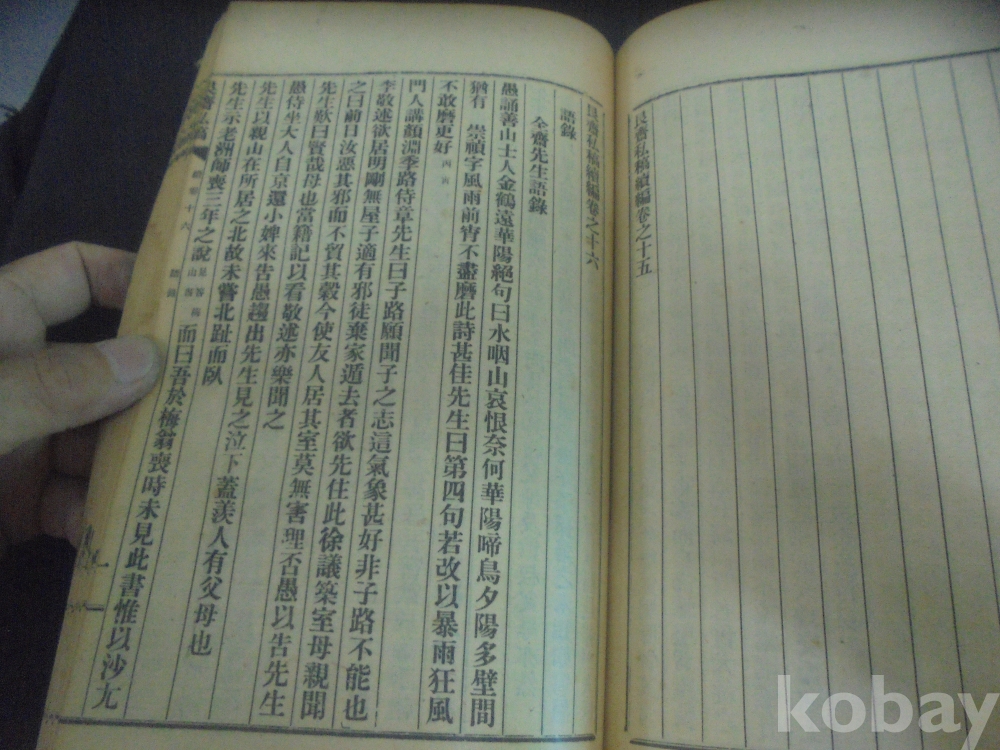 艮齋私稿續編卷之十五
艮齋私稿續編卷之十六
語錄
全齋先生語錄
愚誦善山士人金鶴遠華陽絕句曰水咽山哀恨奈何華陽啼鳥夕陽多壁間
猶有 崇禎字風雨前胄不盡磨此詩甚佳先生曰第四句若改以暴雨狂風
不敢磨更好
門人講顏淵季路侍章先生曰子路願聞子之志這氣象甚好非子路不能也
李敬述欲居明剛無屋子適有邪徒棄家遁去者欲先住此徐議築室母親聞
之曰前日汝惡其邪而不貿其穀今使友人居其室莫無害理否愚以告先生
先生歎曰賢哉母也當籍記以看敬述亦樂聞之
愚侍坐大人自京還小婢來告愚趨出先生見之泣下蓋羨人有父母也
先生以親山在所居之北故未嘗北趾而臥
先生示老洲師喪三年之說 而曰吾於梅翁喪時未見此書惟以沙尤
艮齋私稿
kobay